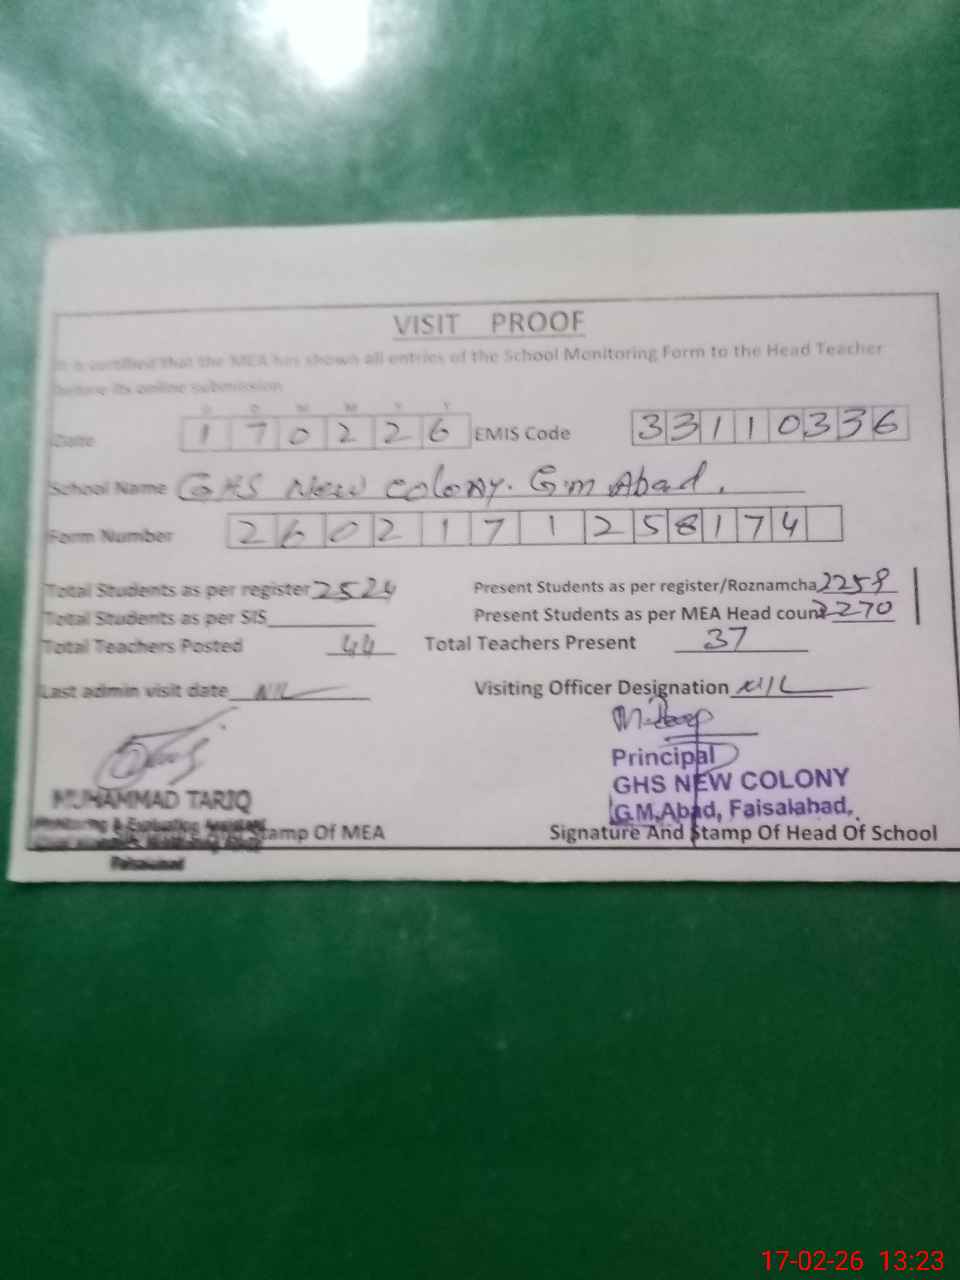 VISIT PROOF
It is certified that the MEA has shown all entries of the School Monitoring Form to the Head Teacher
before its online submission
D D M M Y Y
Date 170226 EMIS Code 33110336
School Name GHS New Colony. Gm Abad.
Form Number 2602171258174
Total Students as per register 2524 Present Students as per register/Roznamcha 2259
Total Students as per SIS Present Students as per MEA Head count 2270
Total Teachers Posted 44 Total Teachers Present 37
Last admin visit date NIL Visiting Officer Designation NIL
Principal
GHS NEW COLONY
G.M.Abad, Faisalabad.
MUHAMMAD TARIQ
Monitoring & Evaluation Assistant
Stamp Of MEA Signature And Stamp Of Head Of School
Faisalabad
17-02-26 13:23